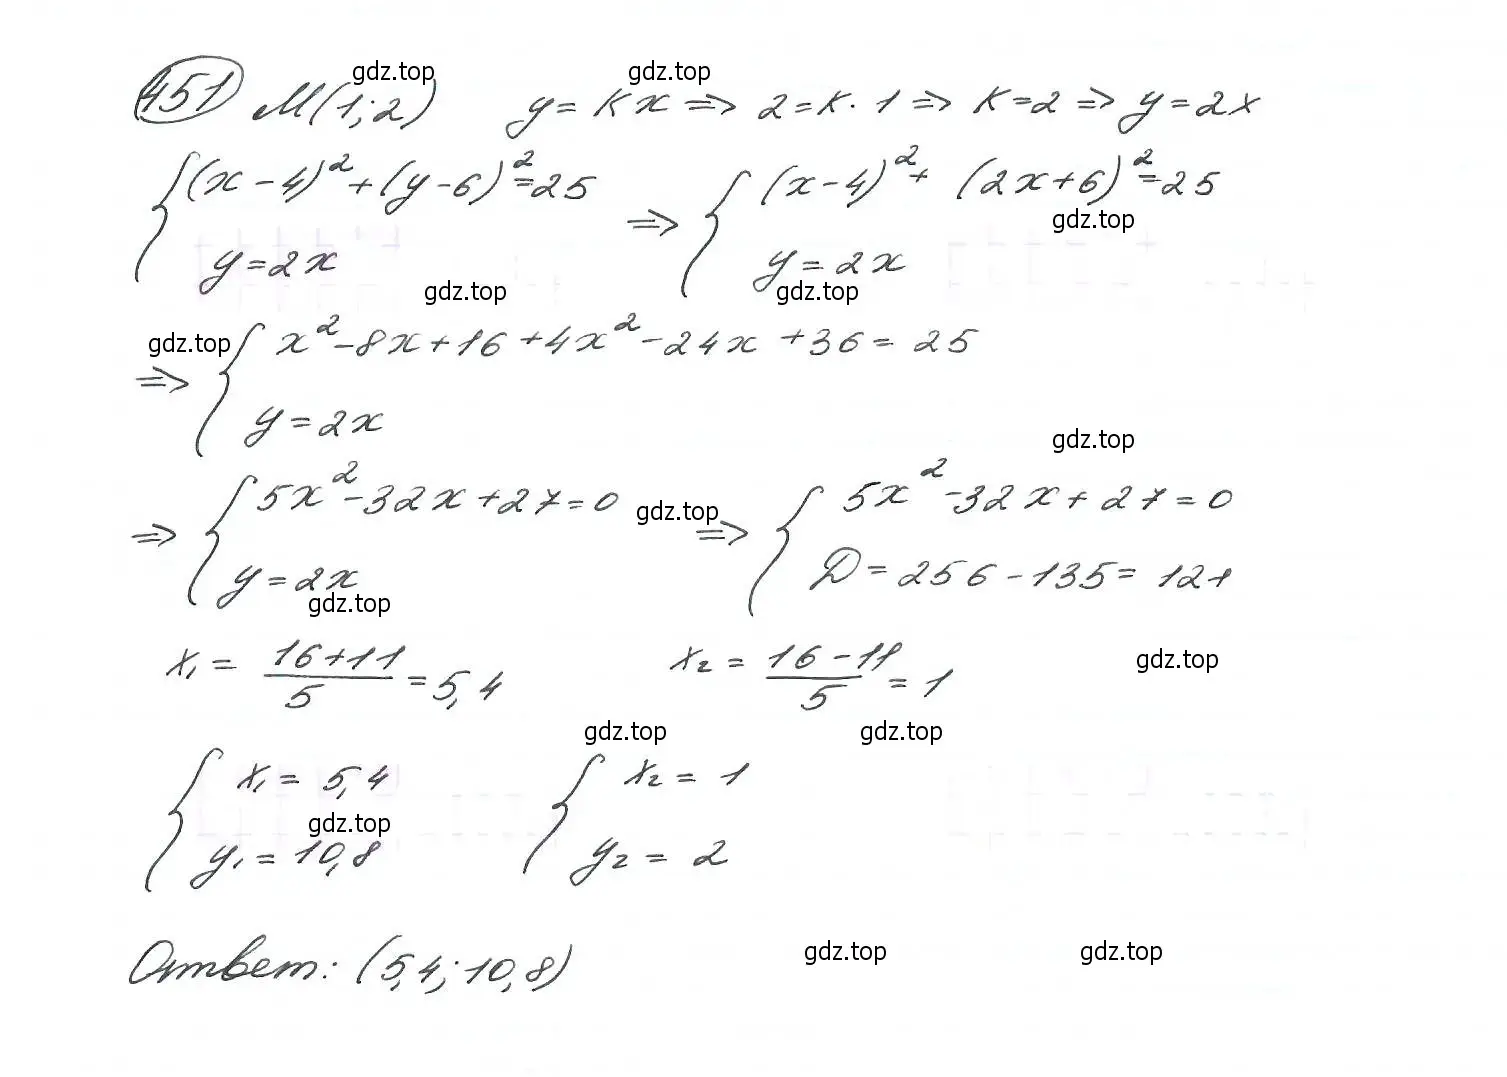 gdz.top gdz.top
451 M(1;2) y=kx => 2=k·1 => k=2 => y=2x
{(x-4)²+(y-6)²=25 => {(x-4)²+(2x+6)²=25
gdz.top
y=2x y=2x
gdz.top gdz.top
gdz.top
=> {x²-8x+16+4x²-24x+36=25
y=2x
gdz.top
=> {5x²-32x+27=0 gdz.top => {5x²-32x+27=0
y=2x Д=256-135=121
gdz.top
x₁=(16+11)/5=5,4 x₂=(16-11)/5=1 gdz.top
gdz.top gdz.top
{x₁=5,4 {x₂=1
gdz.top
y₁=10,8 y₂=2
Ответ: (5,4;10,8) gdz.top gdz.top